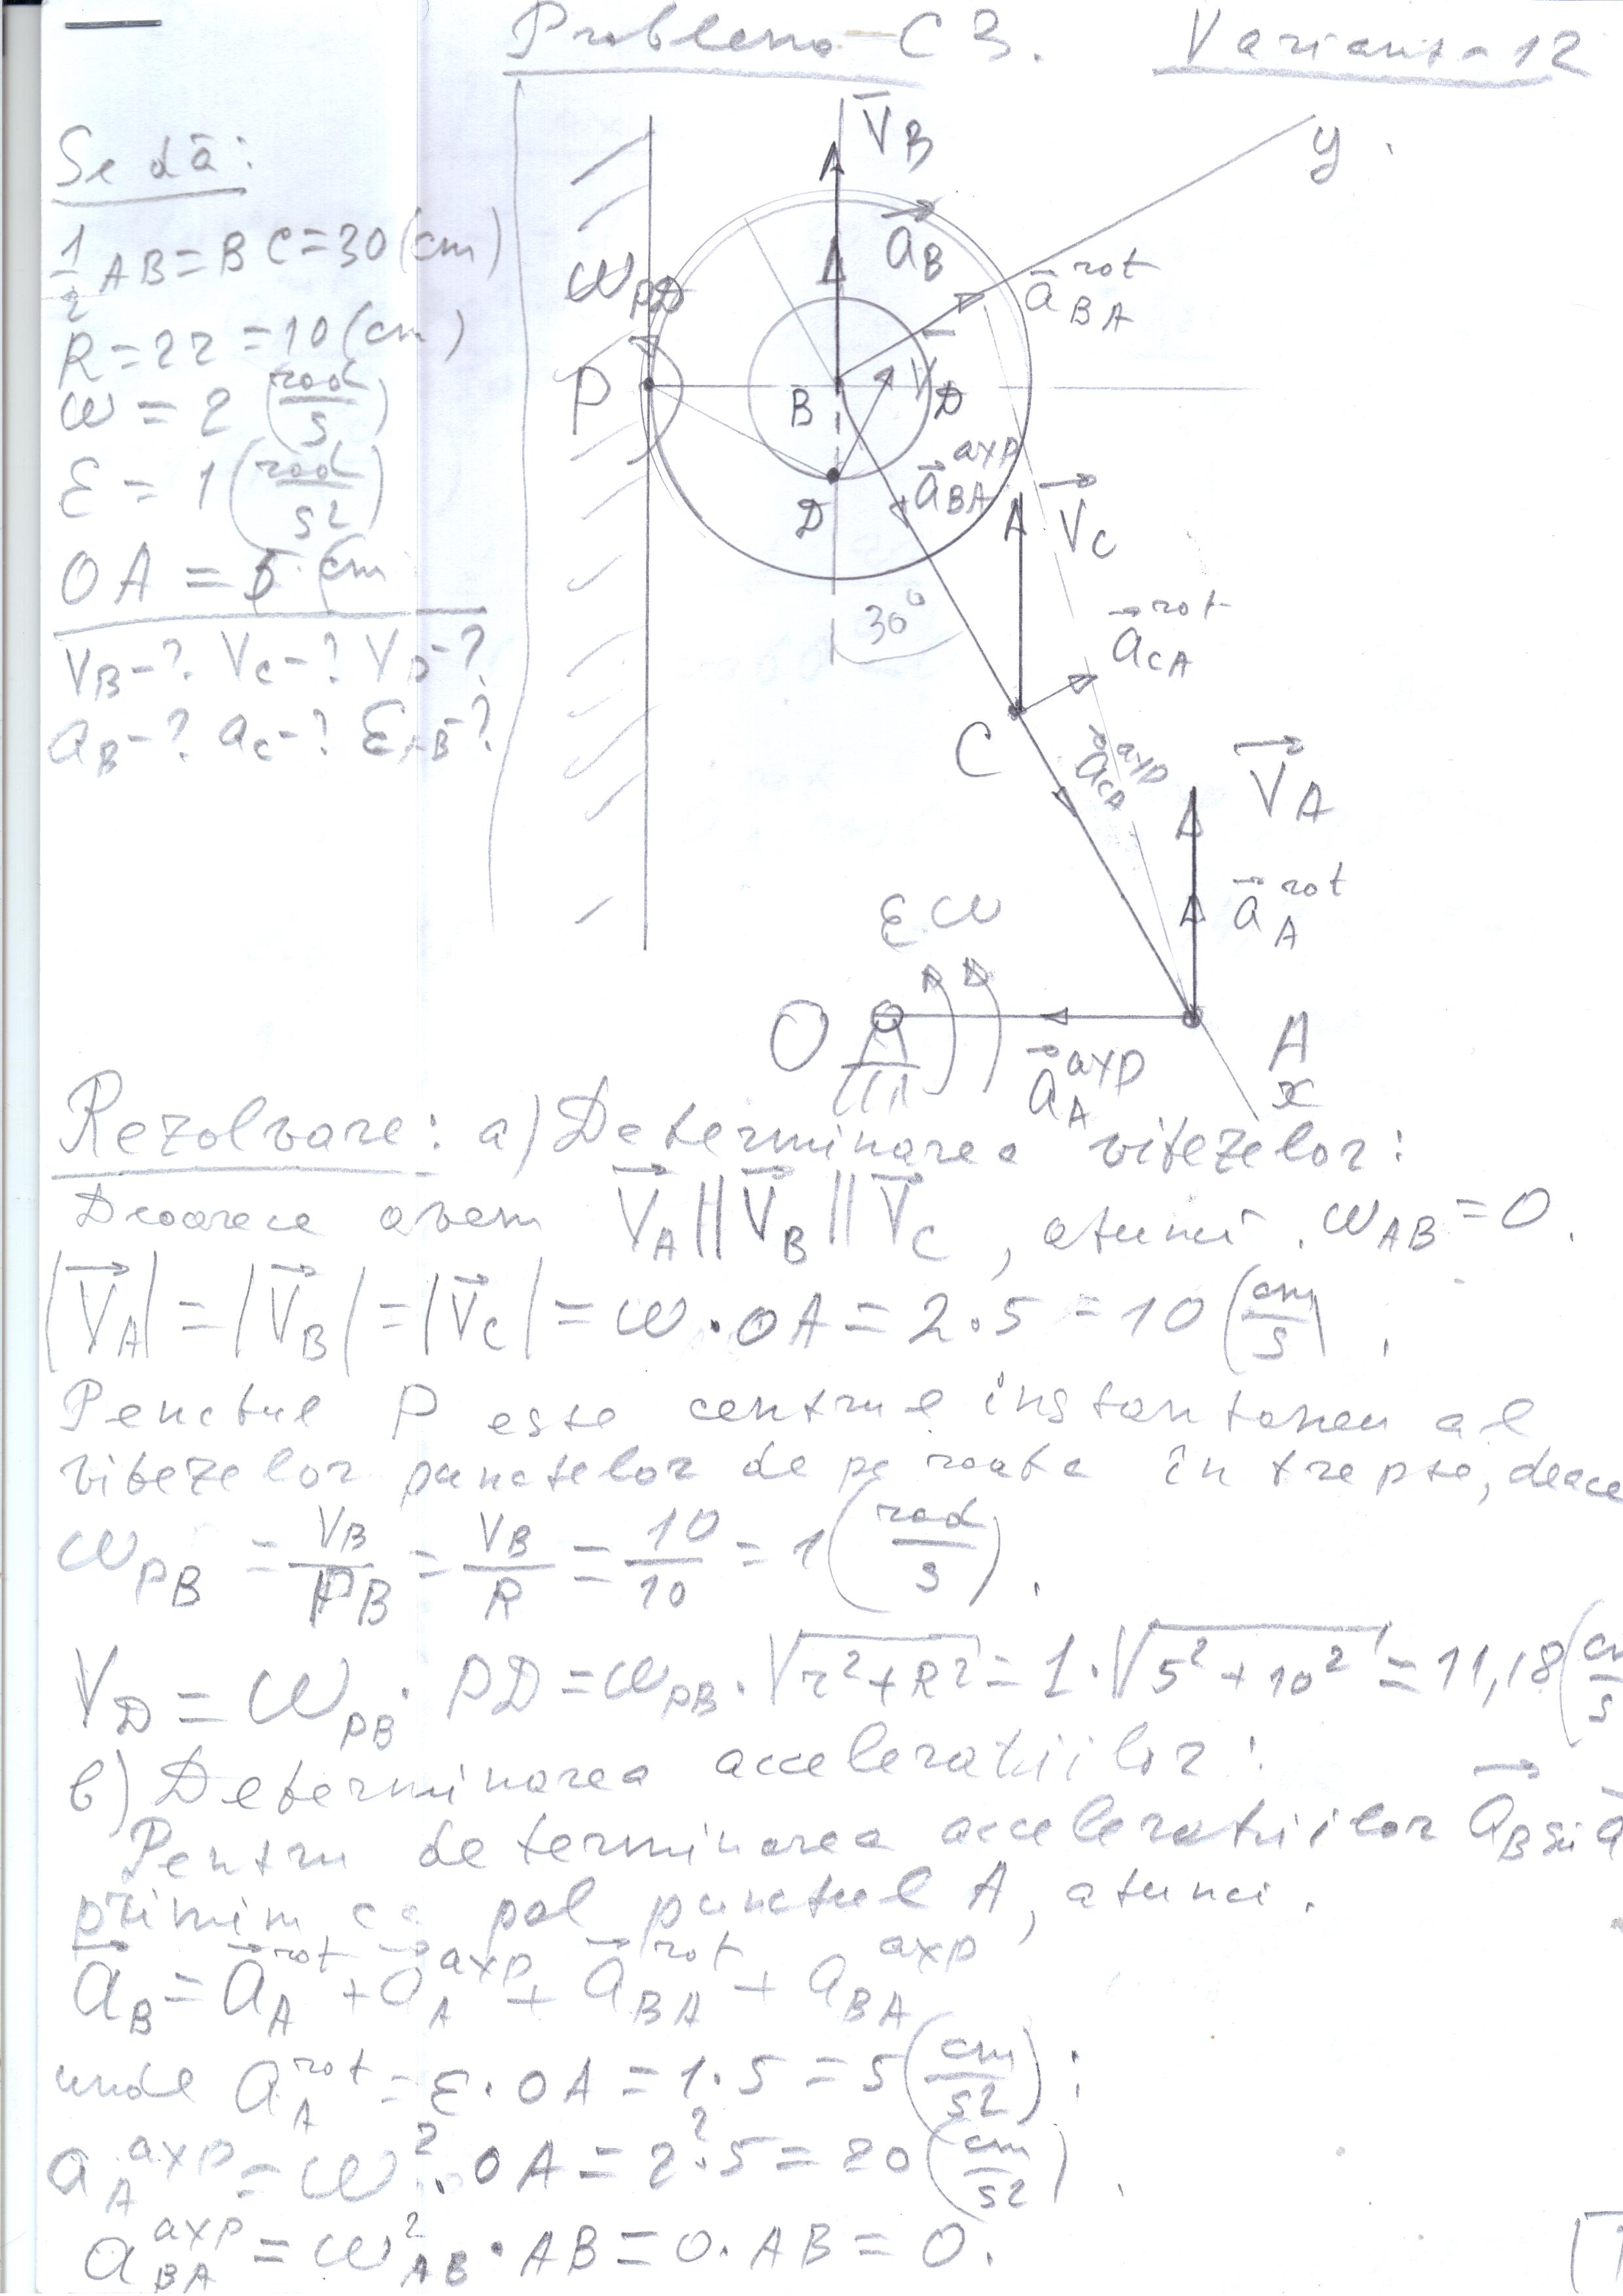 Problema C3. Varianta 12
Se dă:
1/2 AB = BC = 30 (cm)
R = 2r = 10 (cm)
ω = 2 (rad/s)
ε = 1 (rad/s²)
OA = 5 (cm
V_B-? V_C-? V_D-?
a_B-? a_C-? ε_AB-?
V̄_B
y
a⃗_B
ā_BA^rot
ω_PB
V̄_D
P
B
D
a⃗_BA^axp
V⃗_C
30°
a⃗_CA^rot
C
a⃗_CA^axp
V⃗_A
a⃗_A^rot
ε ω
O
A
a⃗_A^axp
x
Rezolvare: a) Determinarea vitezelor:
Deoarece avem V⃗_A || V⃗_B || V⃗_C, atunci. ω_AB = 0.
|V⃗_A| = |V⃗_B| = |V⃗_C| = ω · OA = 2·5 = 10 (cm/s).
Penctul P este centrul instantaneu al
vitezelor punctelor de pe roata în trepte, deace
ω_PB = V_B/PB = V_B/R = 10/10 = 1 (rad/s).
V_D = ω_PB · PD = ω_PB · √(r²+R²) = 1·√(5²+10²) = 11,18 (cm/s
b) Determinarea acceleratiilor:
Pentru determinarea acceleratiilor a⃗_B si a
primim ca pol punctul A, atunci.
a⃗_B = a⃗_A^rot + a⃗_A^axp + a⃗_BA^rot + a_BA^axp
unde a_A^rot = ε · OA = 1·5 = 5 (cm/s²);
a_A^axp = ω² · OA = 2²·5 = 20 (cm/s²).
a_BA^axp = ω²_AB · AB = 0 · AB = 0.